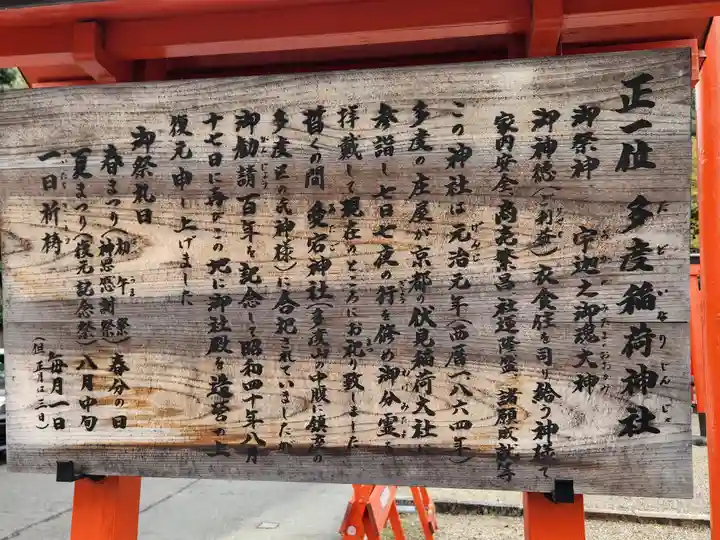 正一位 多度稲荷神社
御祭神 宇迦之御魂大神
御神徳(ご利益)衣食住を司り給う神様で
家内安全、商売繁昌、社運隆盛、諸願成就等
この神社は元治元年(西暦一八六四年)
多度の庄屋が京都の伏見稲荷大社に
参詣し七日七夜の行を修め御分霊を
拝戴して現在のところにお祀り致しました
暫くの間 愛宕神社(多度山の中腹に鎮まる
多度区の氏神様)に合祀されていましたが
御勧請百年を記念して昭和四十年八月
十七日に再びこの地に御社殿を造営の上
復元申し上げました
御祭礼日
春まつり(初午祭)(神恩感謝祭) 春分の日
夏まつり(復元記念祭) 八月中旬
一日祈祷 毎月一日(但 正月は三日)